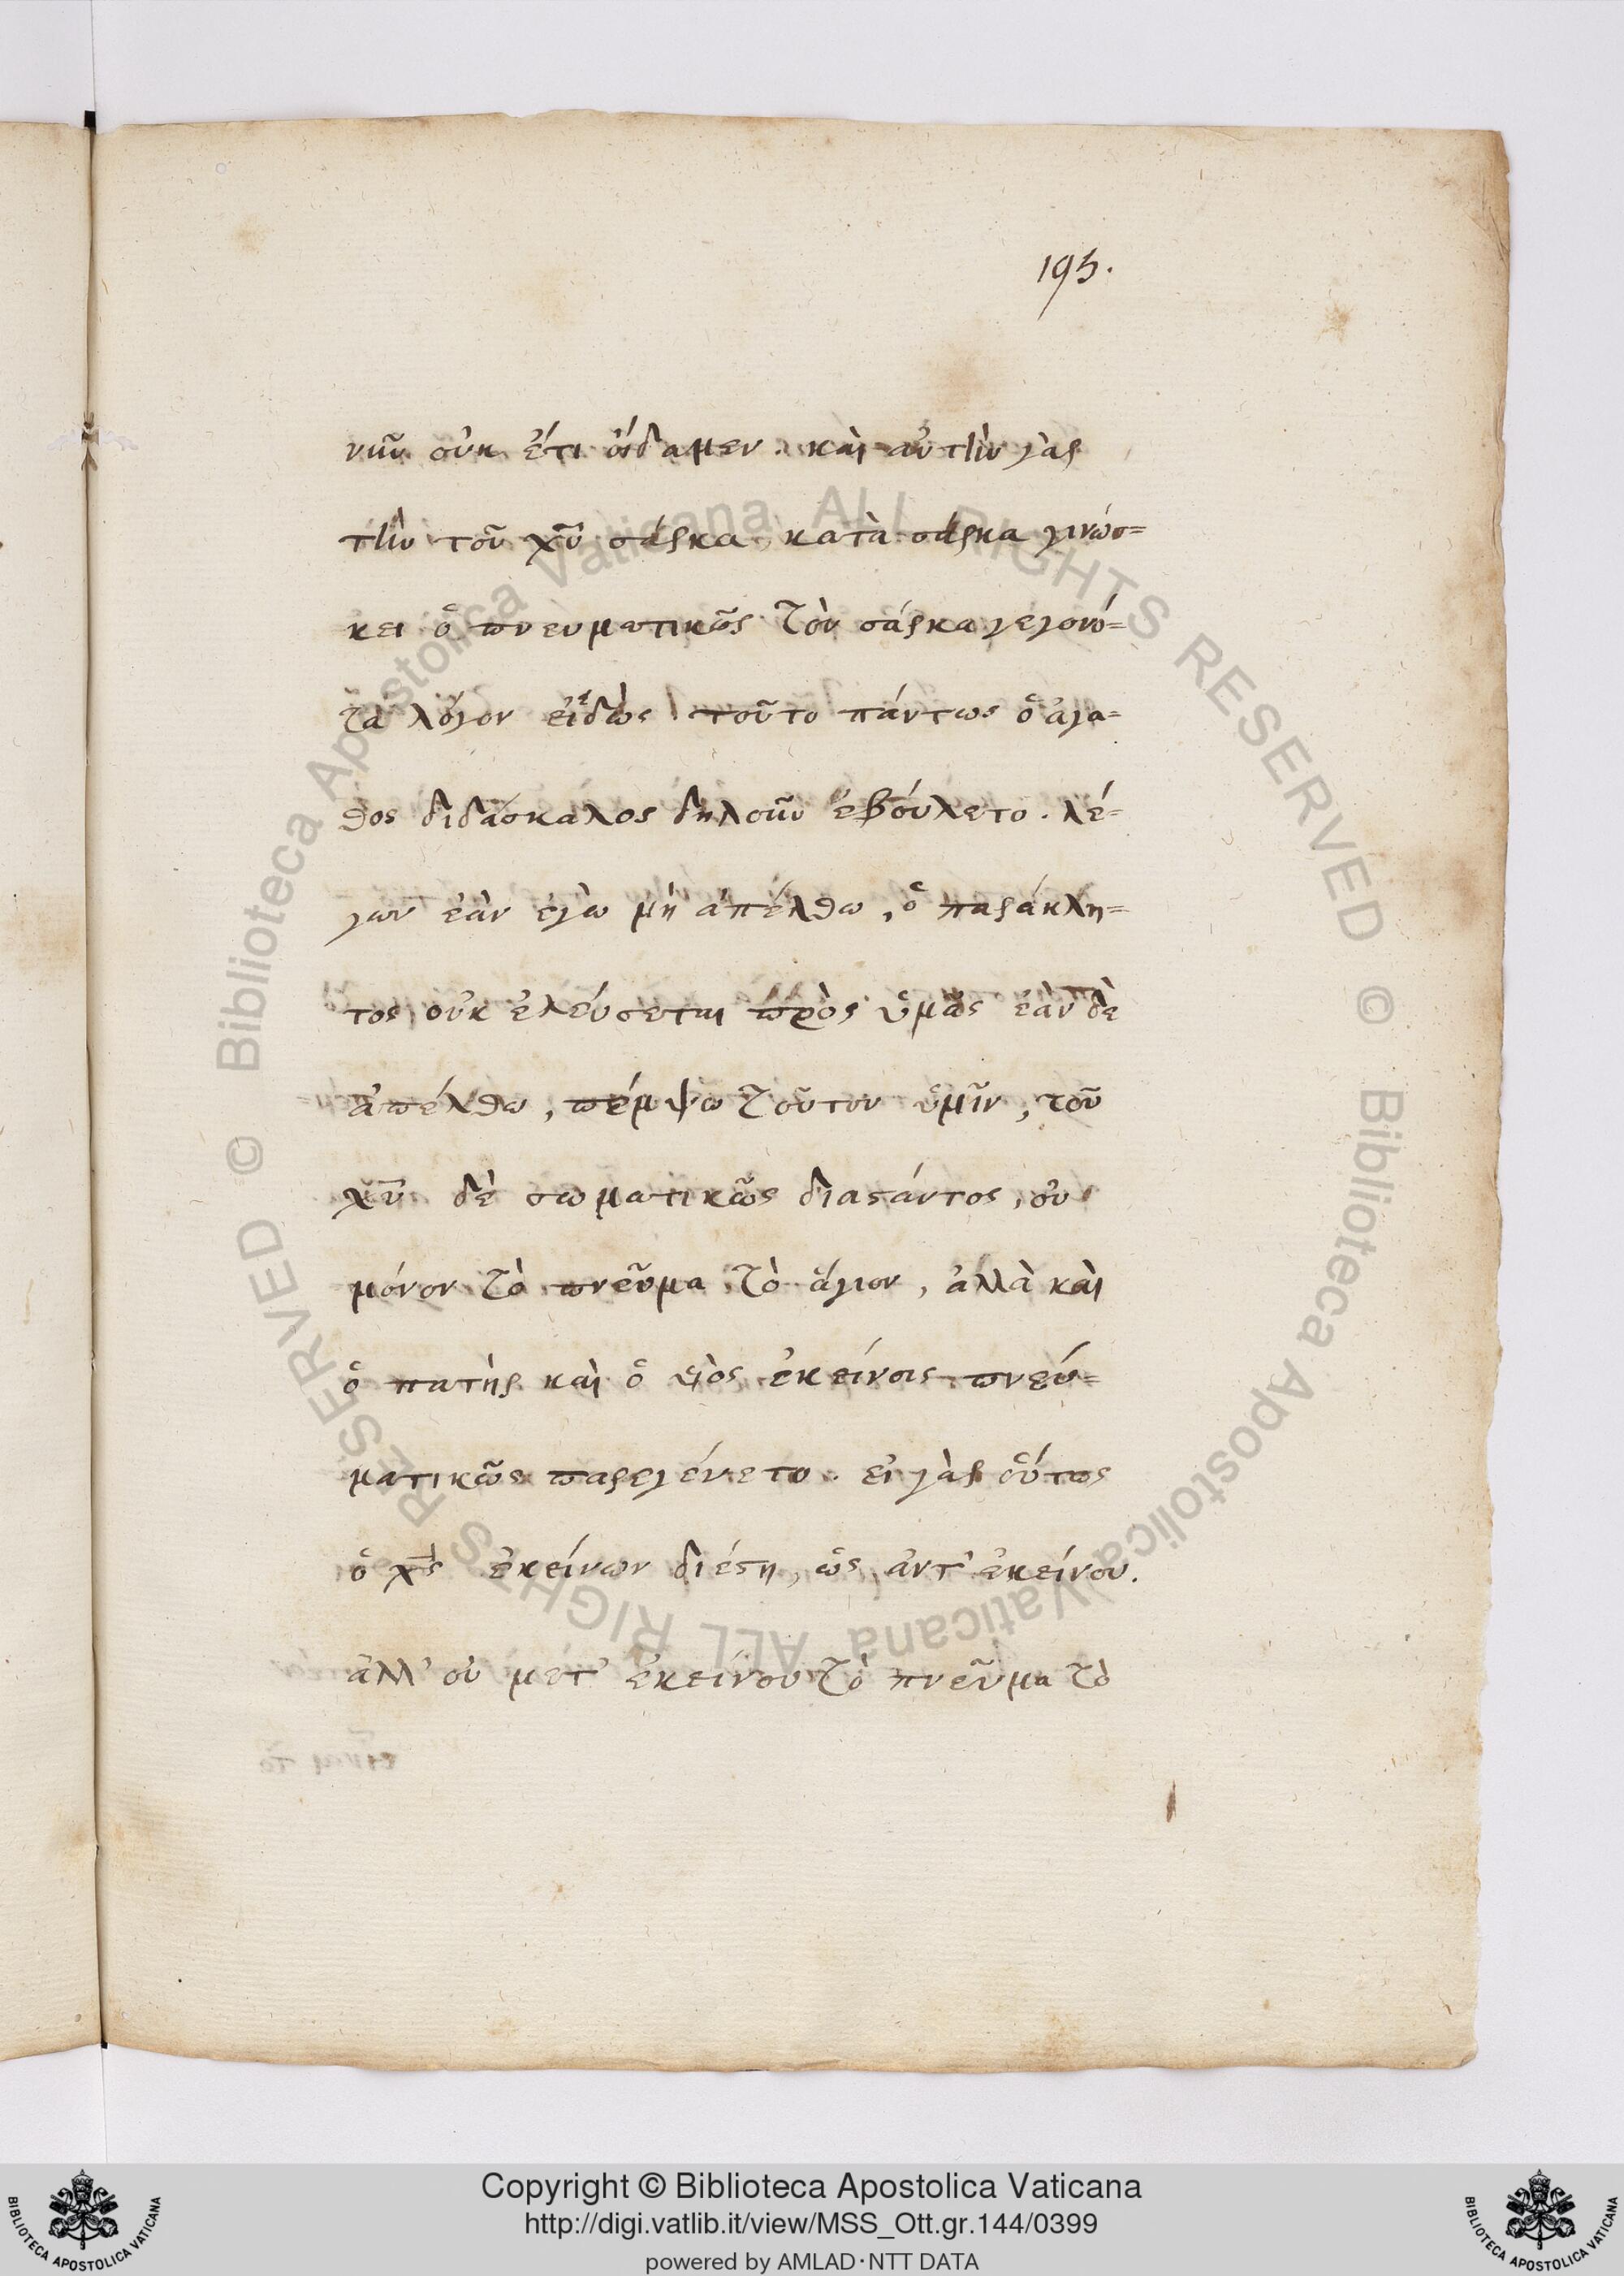 195.
νῦν οὐκ ἔτι οἴδαμεν. καὶ αὐτὴν γὰρ
τὴν τοῦ χῦ σάρκα κατὰ σάρκα γινώσ=
κει ὁ πνευματικῶς τὸν σάρκα γεγονό=
τα λόγον εἰδὼς τοῦτο πάντως ὁ ἀγα=
θος διδάσκαλος δηλοῦν ἐβούλετο. λέ=
γων ἐὰν ἐγὼ μὴ ἀπέλθω, ὁ παράκλη=
τος οὐκ ἐλεύσεται πρὸς ὑμᾶς ἐὰν δὲ
ἀπέλθω, πέμψω τοῦτον ὑμῖν, τοῦ
χῦ δὲ σωματικῶς διαστάντος, οὐ
μόνον τὸ πνεῦμα τὸ ἅγιον, ἀλλὰ καὶ
ὁ πατὴρ καὶ ὁ υἱὸς ἐκείνοις πνευ=
ματικῶς παρεγένετο. εἰ γὰρ οὕτως
ὁ χς ἐκείνων διέστη, ὡς ἀντ' ἐκείνου.
ἀλλ' οὐ μετ' ἐκείνου τὸ πνεῦμα τὸ
© Biblioteca Apostolica Vaticana ALL RIGHTS RESERVED © Biblioteca Apostolica Vaticana ALL RIGHTS RESERVED
BIBLIOTECA APOSTOLICA VATICANA
Copyright © Biblioteca Apostolica Vaticana
http://digi.vatlib.it/view/MSS_Ott.gr.144/0399
powered by AMLAD·NTT DATA
BIBLIOTECA APOSTOLICA VATICANA